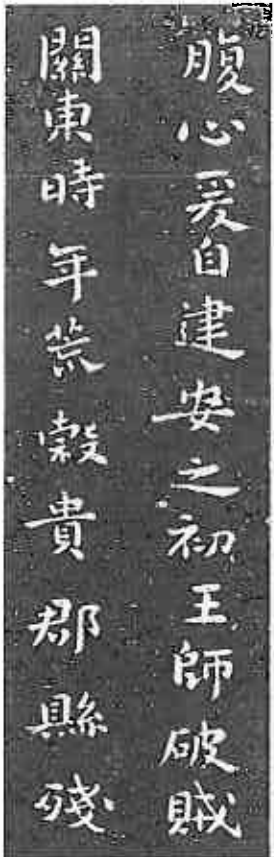 腹心爰自建安之初王師破賊
關東時年荒穀貴郡縣殘